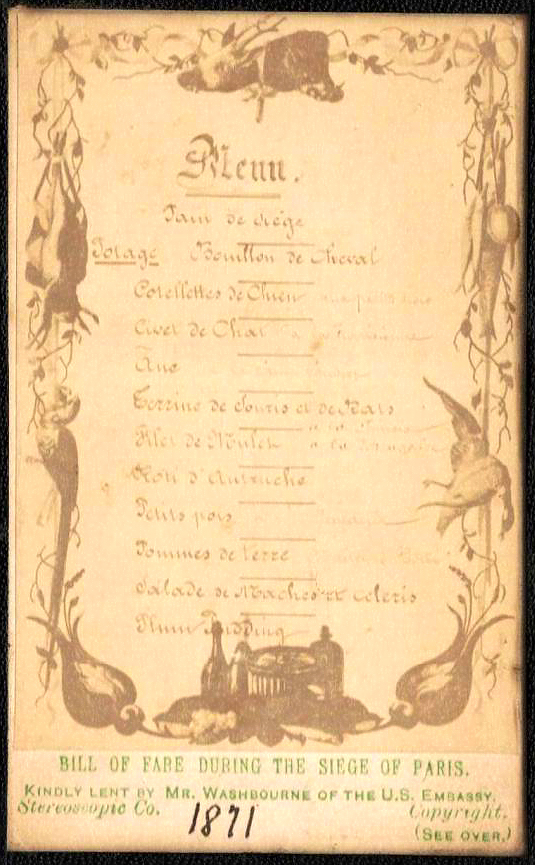 Menu.
Pain de siége
Potage Bouillon de Cheval
Cotellettes de Chien
Civet de Chat
Ane
Terrine de Souris et de Rats
Filet de Mulet
Roti d'Autruche
Petits pois
Pommes de Terre
Salade de Maches et céleris
Plum Pudding
BILL OF FARE DURING THE SIEGE OF PARIS.
KINDLY LENT BY MR. WASHBOURNE OF THE U.S. EMBASSY.
Stereoscopic Co. 1871 Copyright.
(SEE OVER.)